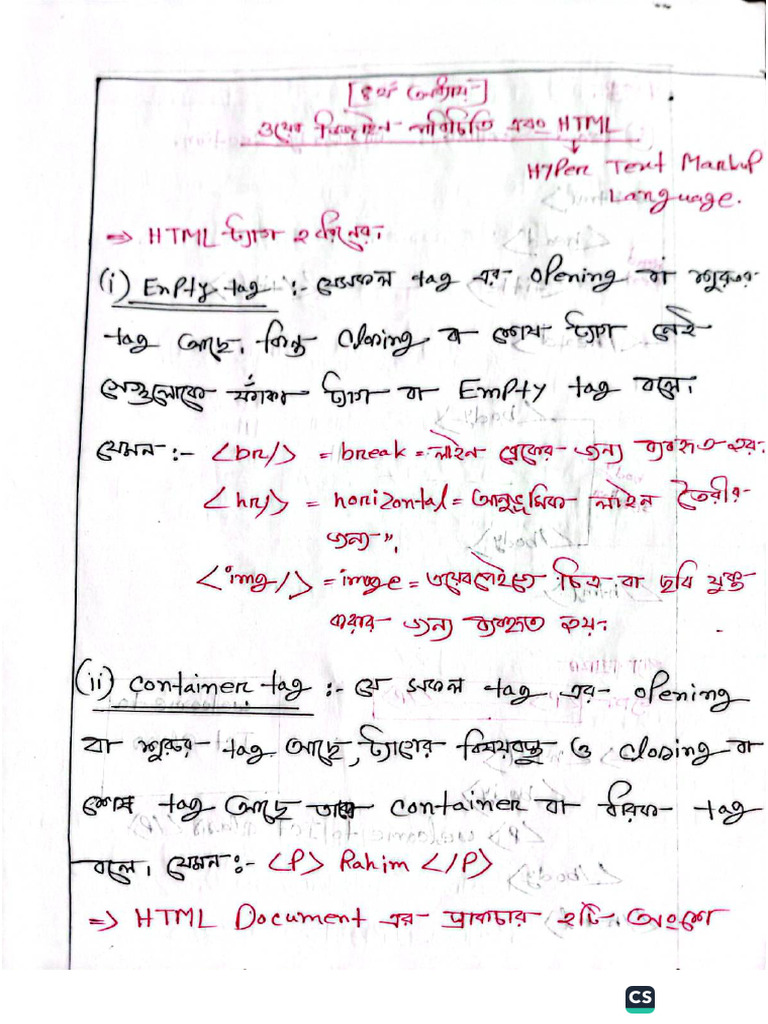 [৪র্থ অধ্যায়-]
ওয়েব ডিজাইন- পরিচিতি এবং HTML
HyPer Text MarkuP
Language.
⇒ HTML ট্যাগ ২ ধরনের।
(i) EmPty tag :- যেসকল tag এর- opening বা শুরুর
tag আছে, কিন্তু closing বা শেষ ট্যাগ নেই
সেগুলোকে ফাঁকা ট্যাগ বা EmPty tag বলে।
যেমন :- <br/> = break = লাইন ব্রেকের জন্য ব্যবহৃত হয়।
<hr/> = horizontal = আনুভূমিক লাইন তৈরীর
জন্য ",
<img/> = image = ওয়েবপেইজে চিত্র বা ছবি যুক্ত
করার জন্য ব্যবহৃত হয়।
(ii) container tag :- যে সকল tag এর- opening
বা শুরুর tag আছে, ট্যাগের বিষয়বস্তু ও closing বা
শেষ tag আছে তাকে container বা ধারক tag
বলে। যেমন :- <P> Rahim </P>
⇒ HTML Document এর- প্রাকচার ২টি অংশে
CS